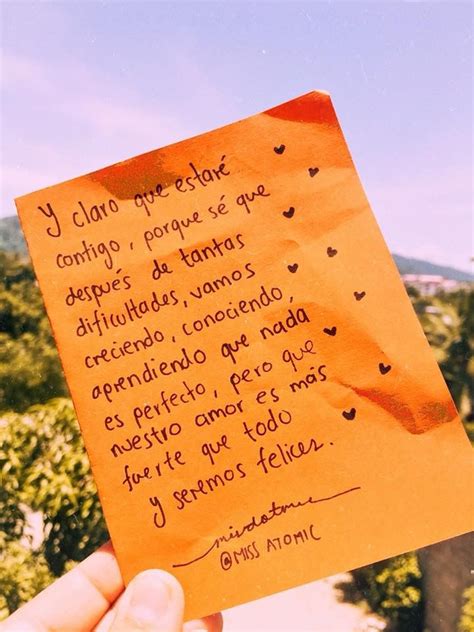 Y claro que estaré
contigo, porque sé que
después de tantas
dificultades, vamos
creciendo, conociendo,
aprendiendo que nada
es perfecto, pero que
nuestro amor es más
fuerte que todo
y seremos felices.
@MISS ATOMIC